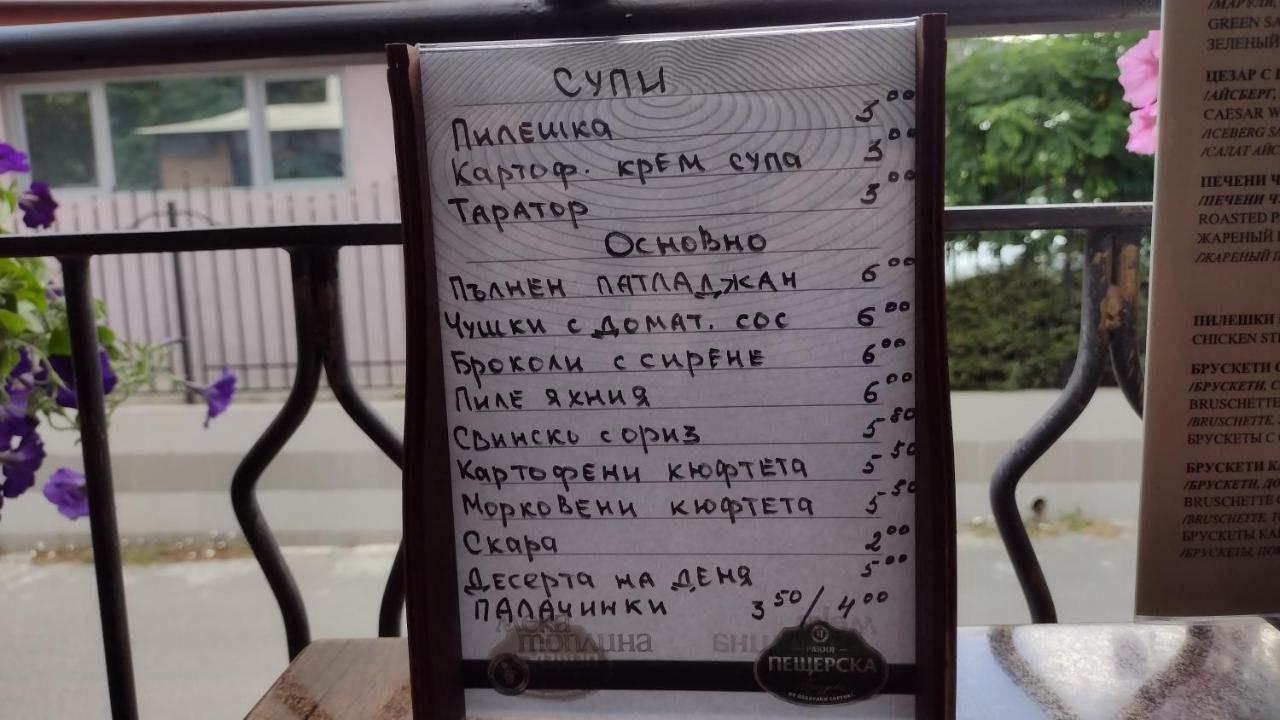 СУПИ
Пилешка 3⁰⁰
Картоф. крем супа 3⁰⁰
Таратор 3⁰⁰
Основно
Пълнен патладжан 6⁰⁰
Чушки с домат. сос 6⁰⁰
Броколи с сирене 6⁰⁰
Пиле яхния 6⁰⁰
Свинско с ориз 5⁸⁰
Картофени кюфтета 5⁵⁰
Морковени кюфтета 5⁵⁰
Скара 2⁰⁰
Десерта на деня 5⁰⁰
Палачинки 3⁵⁰/4⁰⁰
топлина
РАКИЯ
ПЕЩЕРСКА
GREEN
ЗЕЛЕНЫЙ
ЦЕЗАР С
/АЙСБЕРГ,
CAESAR
/ICEBERG
/САЛАТ
ПЕЧЕНИ
/ПЕЧЕНИ
ROASTED
ЖАРЕНЫЙ
/ЖАРЕНЫЙ
ПИЛЕШКИ
CHICKEN
БРУСКЕТИ
/БРУСКЕТИ,
BRUSCHETTE
/BRUSCHETTE,
БРУСКЕТЫ С
БРУСКЕТИ
/БРУСКЕТИ,
BRUSCHETTE
/BRUSCHETTE,
БРУСКЕТЫ
/БРУСКЕТЫ,